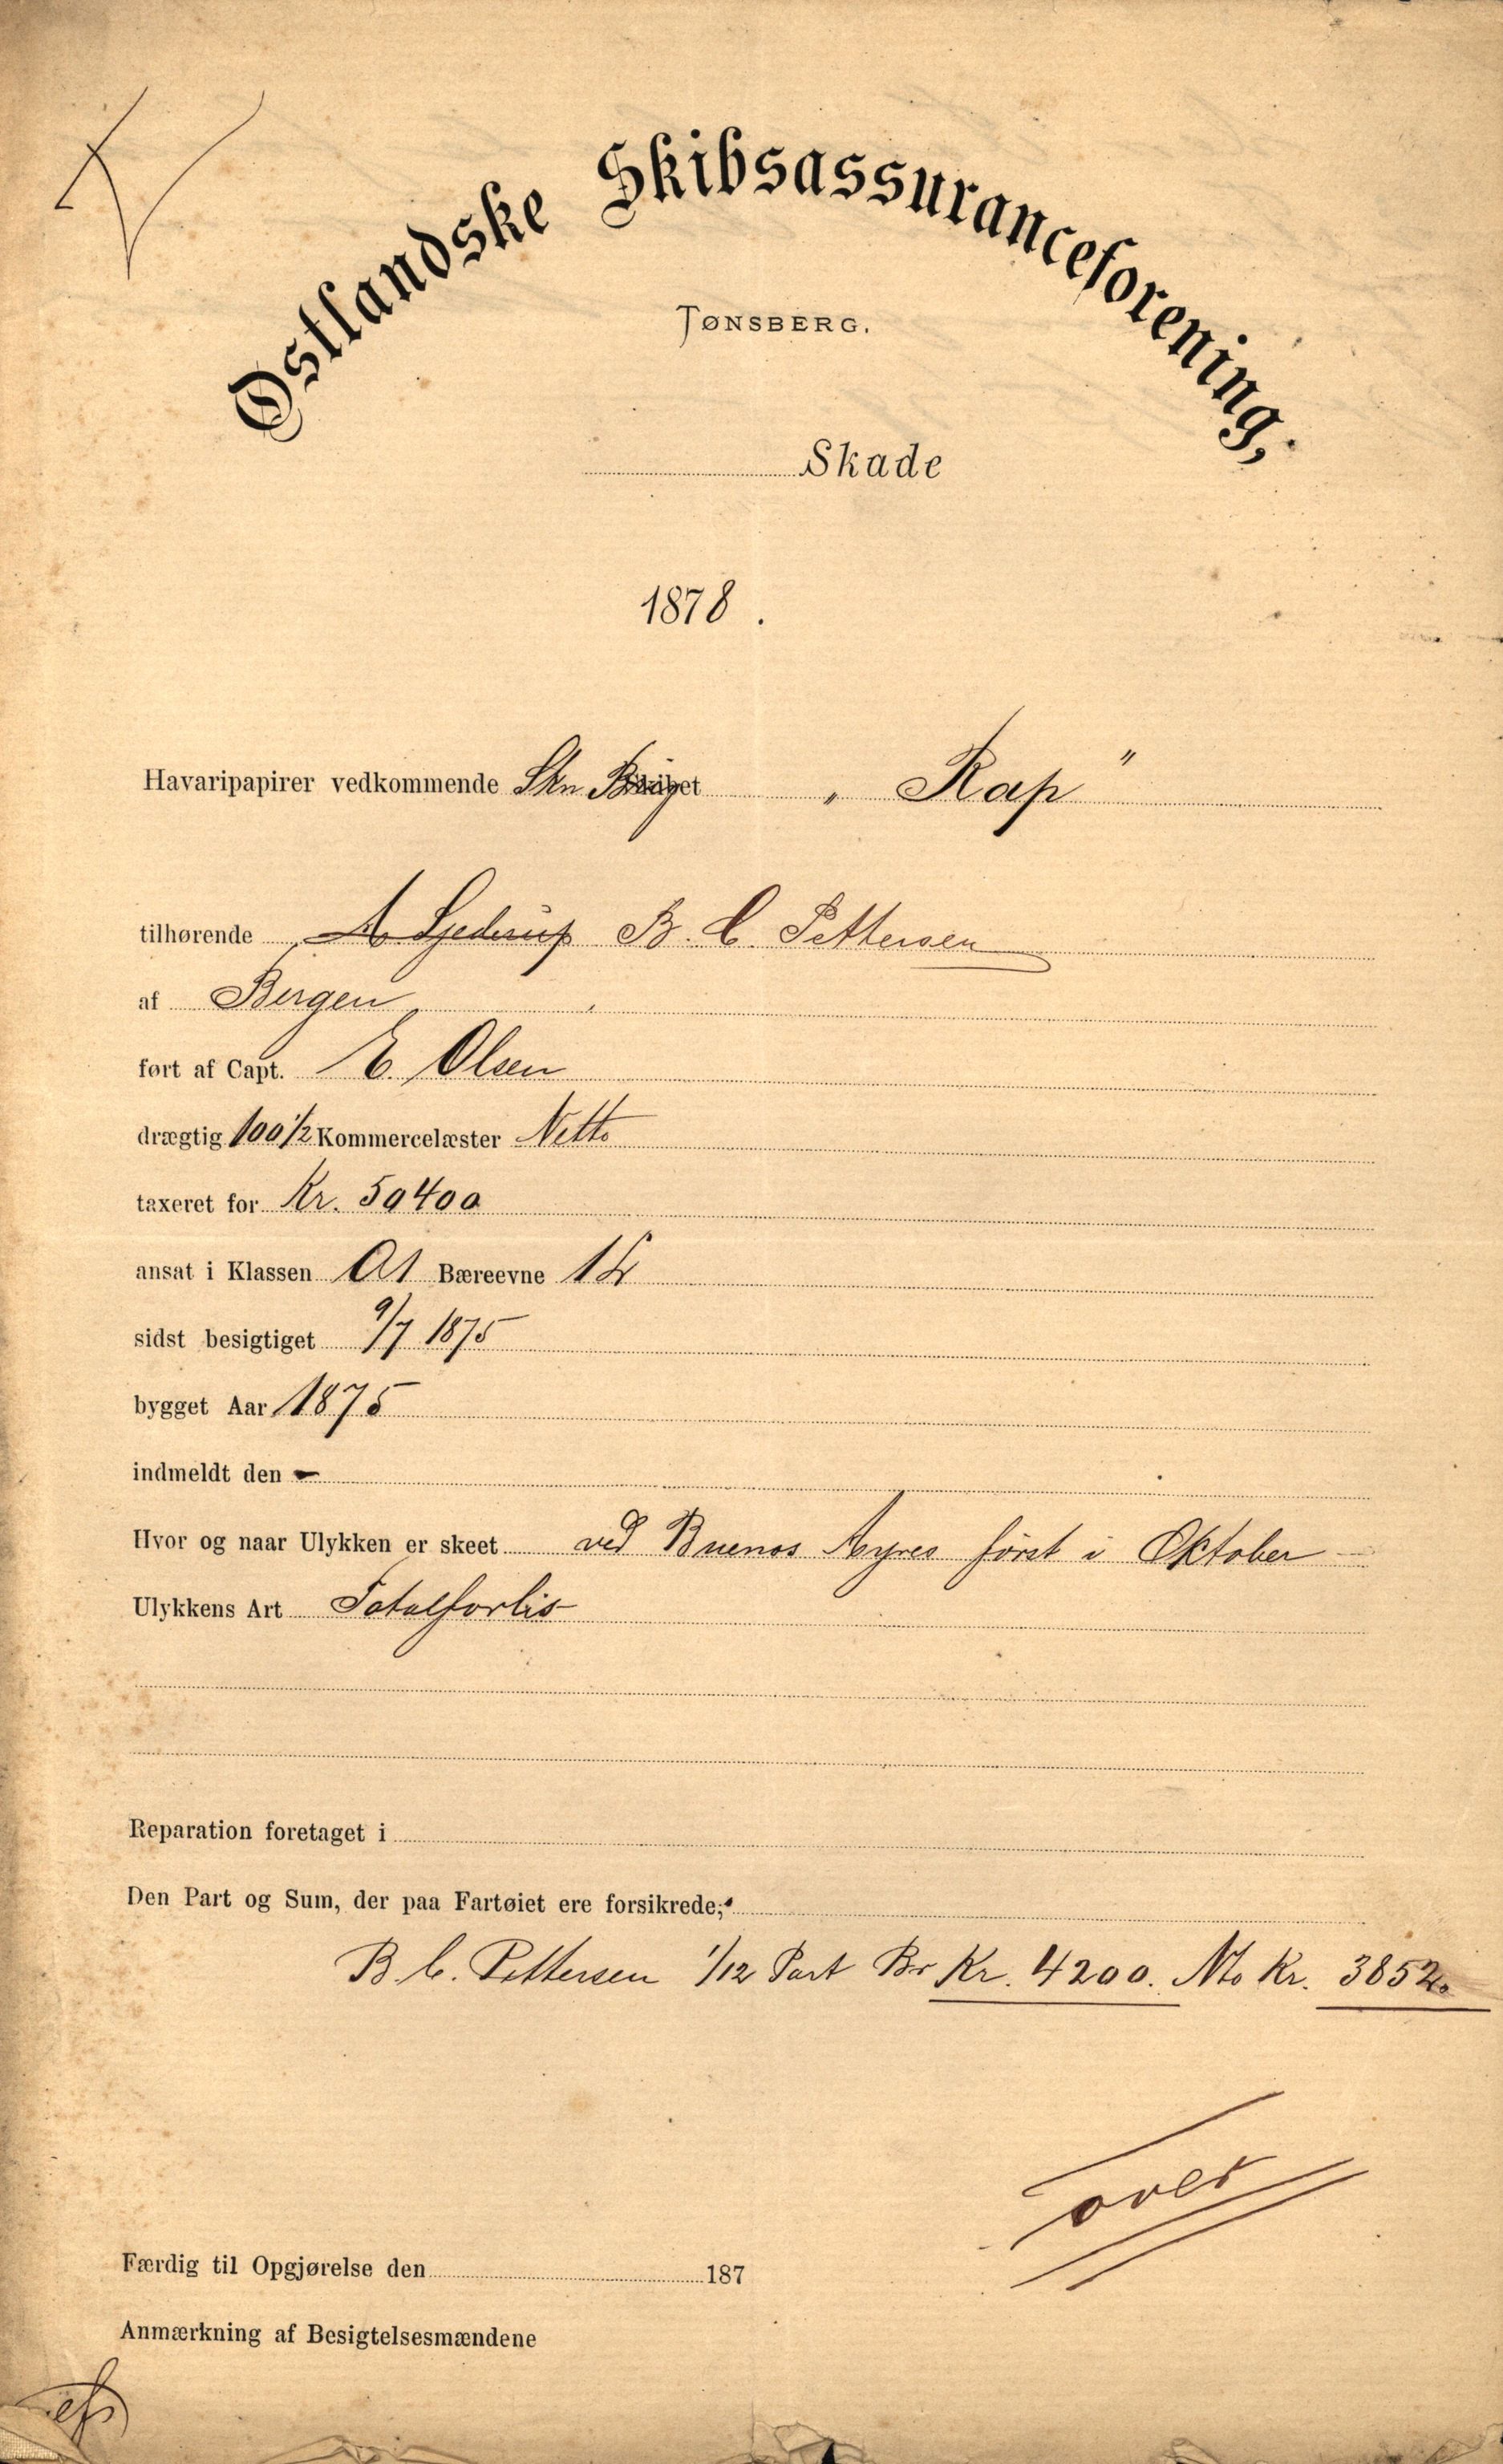 Østlandske Skibsassuranceforening,
TØNSBERG.
Skade
1878.
Havaripapirer vedkommende Skn. Brig „Rap"
tilhørende B. C. Pettersen
af Bergen
ført af Capt. E. Olsen
drægtig 100 1/2 Kommercelæster Netto
taxeret for Kr. 50400
ansat i Klassen A1 Bæreevne
sidst besigtiget 9/7 1875
bygget Aar 1875
indmeldt den –
Hvor og naar Ulykken er skeet ved Buenos Ayres først i Oktober –
Ulykkens Art Totalforlis
Reparation foretaget i
Den Part og Sum, der paa Fartøiet ere forsikrede;
B. C. Pettersen 1/12 Part Br Kr. 4200. Nto Kr. 3852.
over
Færdig til Opgjørelse den 187
Anmærkning af Besigtelsesmændene